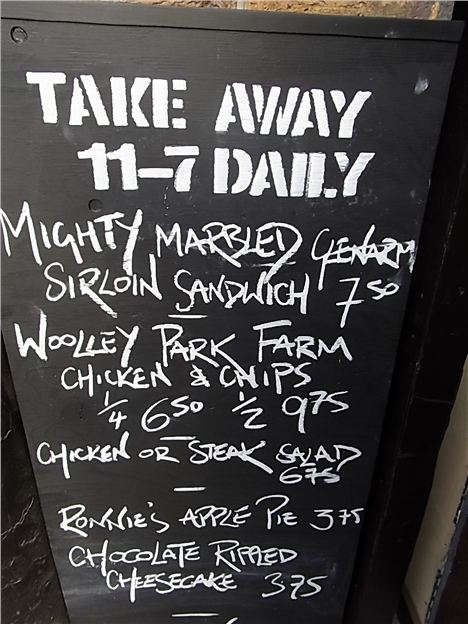 TAKE AWAY
11-7 DAILY
MIGHTY MARBLED GLENARM
SIRLOIN SANDWICH 7 50
WOOLLEY PARK FARM
CHICKEN & CHIPS
1/4 6 50 1/2 9 75
CHICKEN OR STEAK SALAD
6 75
RONNIE'S APPLE PIE 3 75
CHOCOLATE RIPPLED
CHEESECAKE 3 75